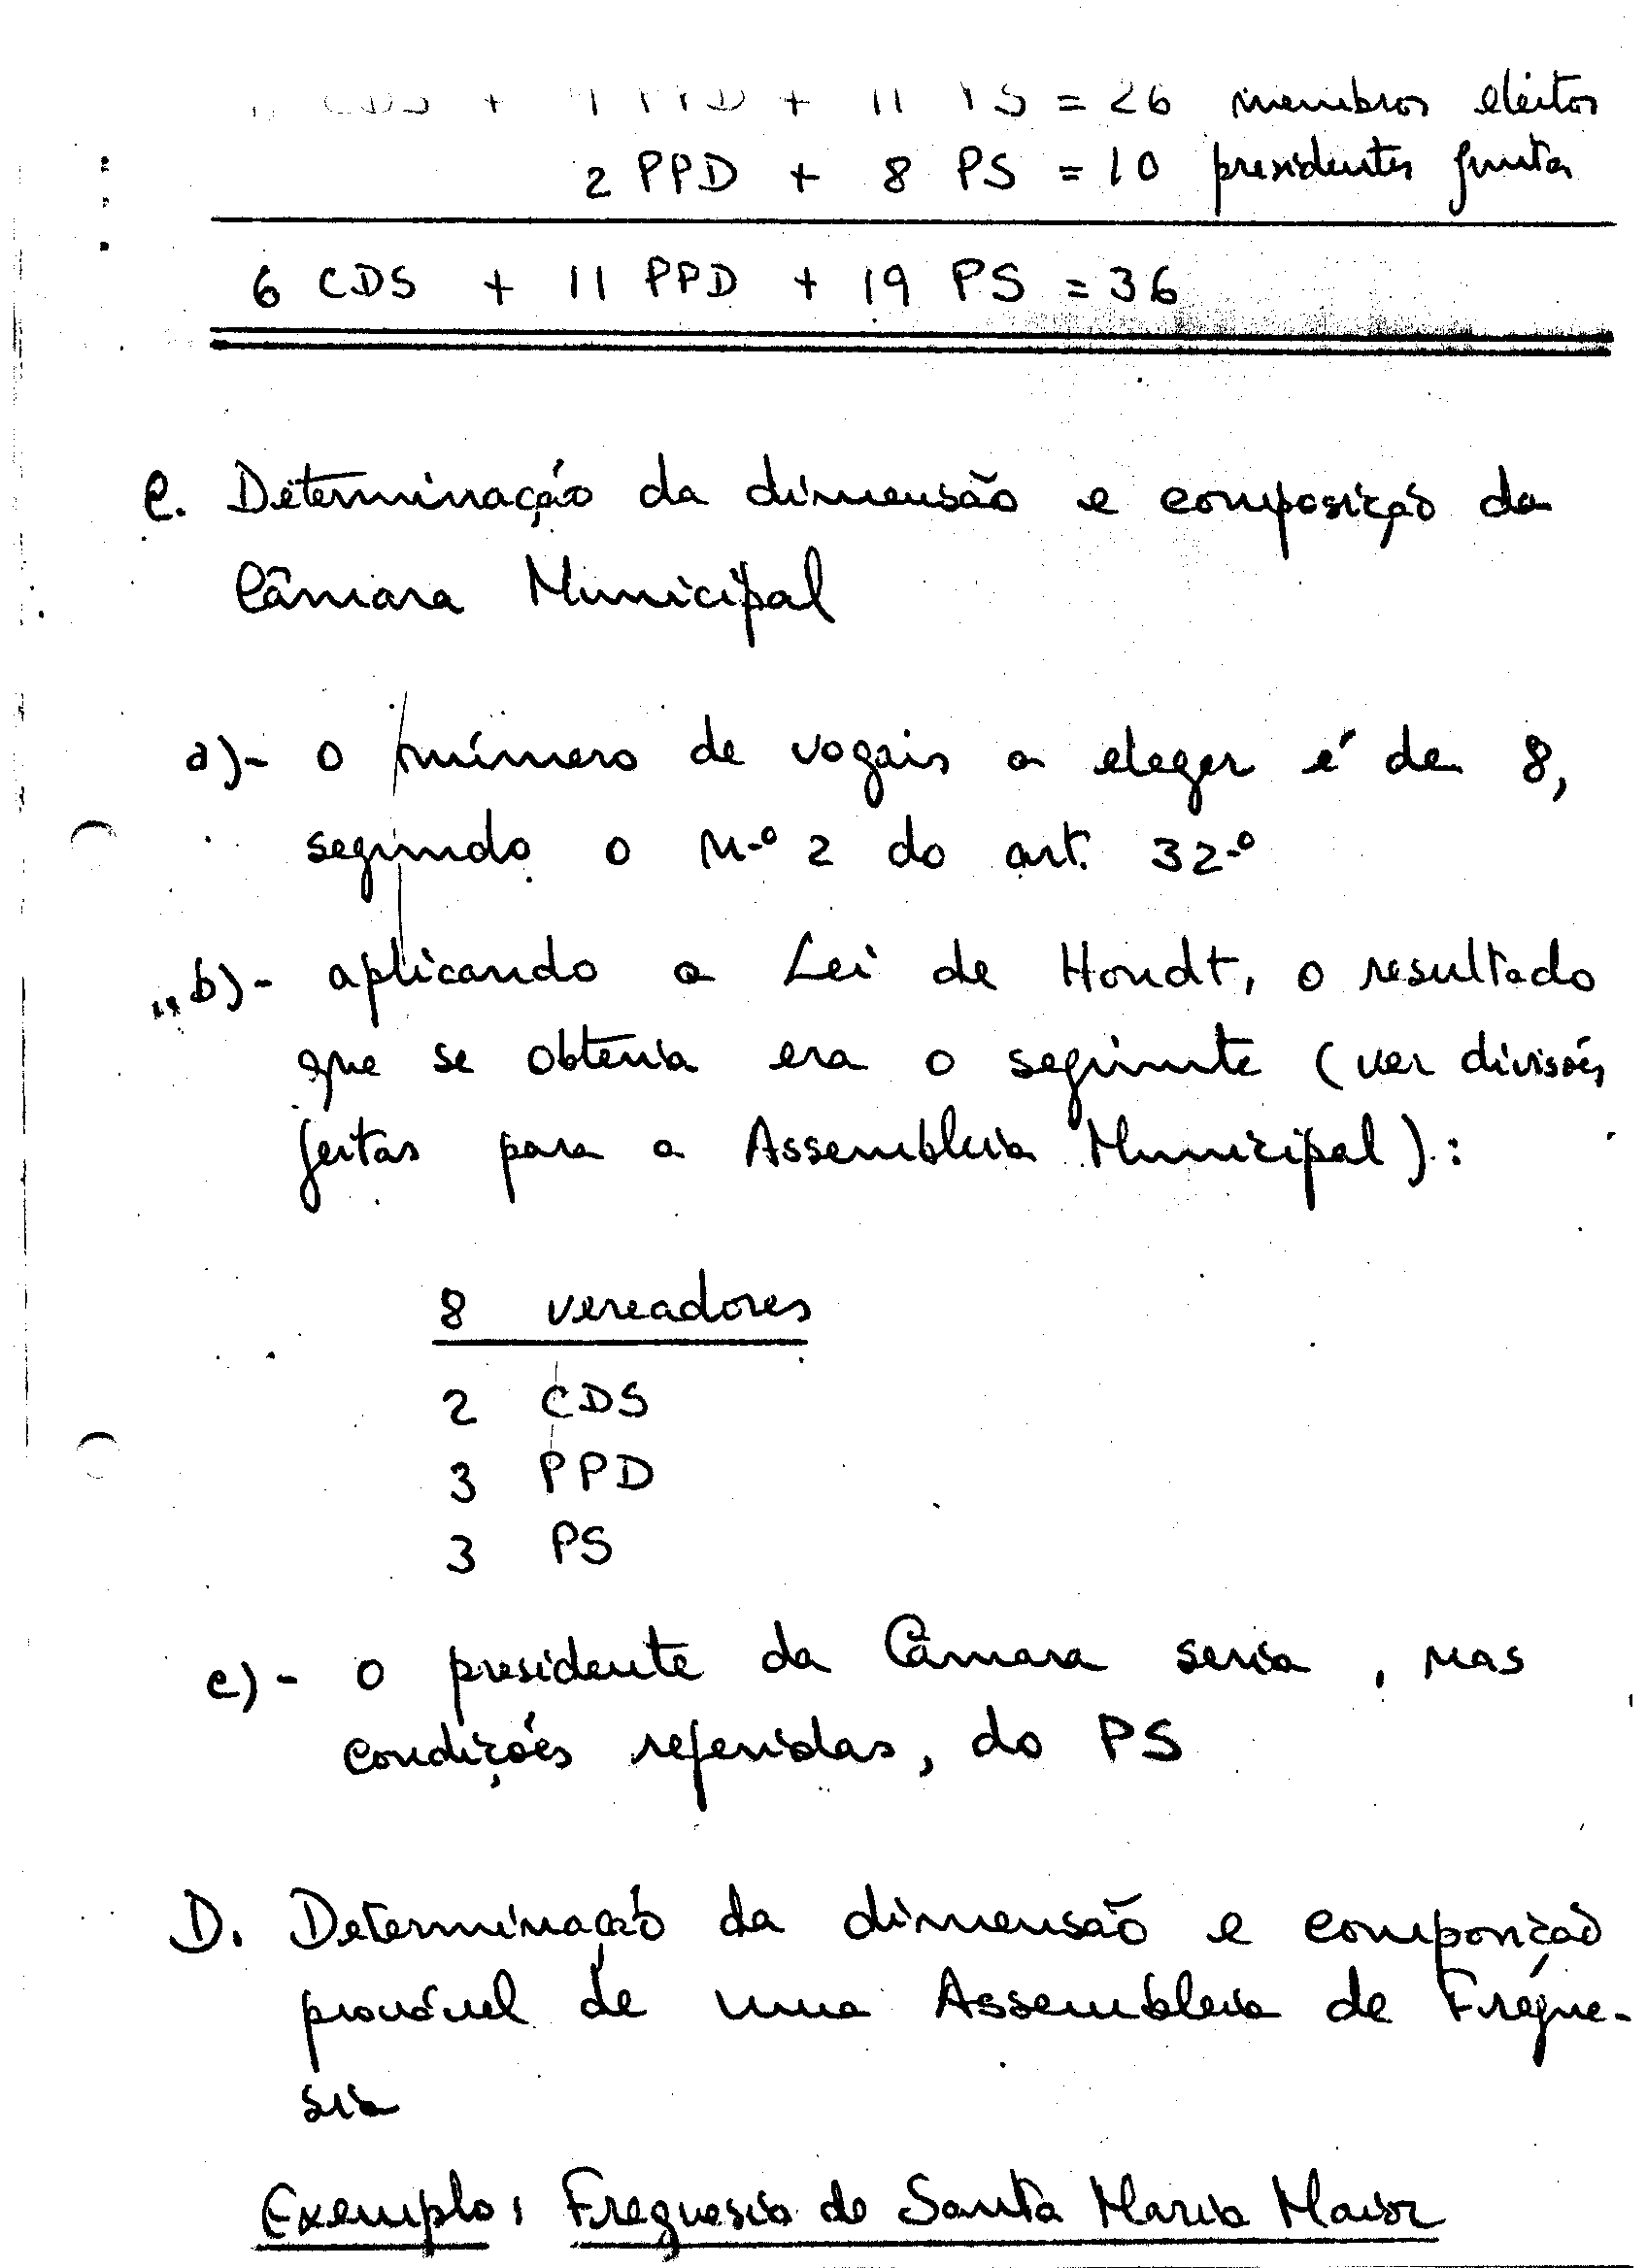 CDS + 9 PPD + 11 PS = 26 membros eleitos
2 PPD + 8 PS = 10 presidentes junta
6 CDS + 11 PPD + 19 PS = 36
C. Determinação da dimensão e composição da
Câmara Municipal
a)- o número de vogais a eleger é de 8,
segundo o n.º 2 do art. 32.º
b)- aplicando a Lei de Hondt, o resultado
que se obteria era o seguinte (ver divisões
feitas para a Assembleia Municipal):
8 vereadores
2 CDS
3 PPD
3 PS
c)- o presidente da Câmara seria, nas
condições referidas, do PS
D. Determinação da dimensão e composição
provável de uma Assembleia de Fregue-
sia
Exemplo: Freguesia de Santa Maria Maior